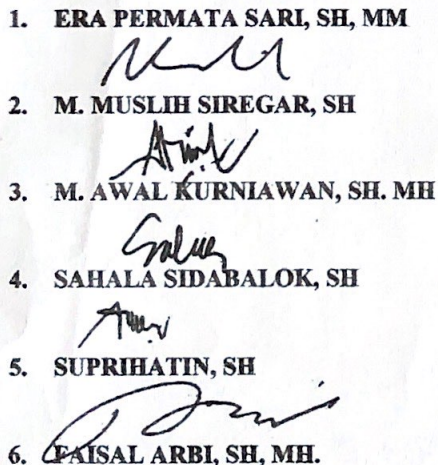 1. ERA PERMATA SARI, SH, MM
2. M. MUSLIH SIREGAR, SH
3. M. AWAL KURNIAWAN, SH. MH
4. SAHALA SIDABALOK, SH
5. SUPRIHATIN, SH
6. FAISAL ARBI, SH, MH.